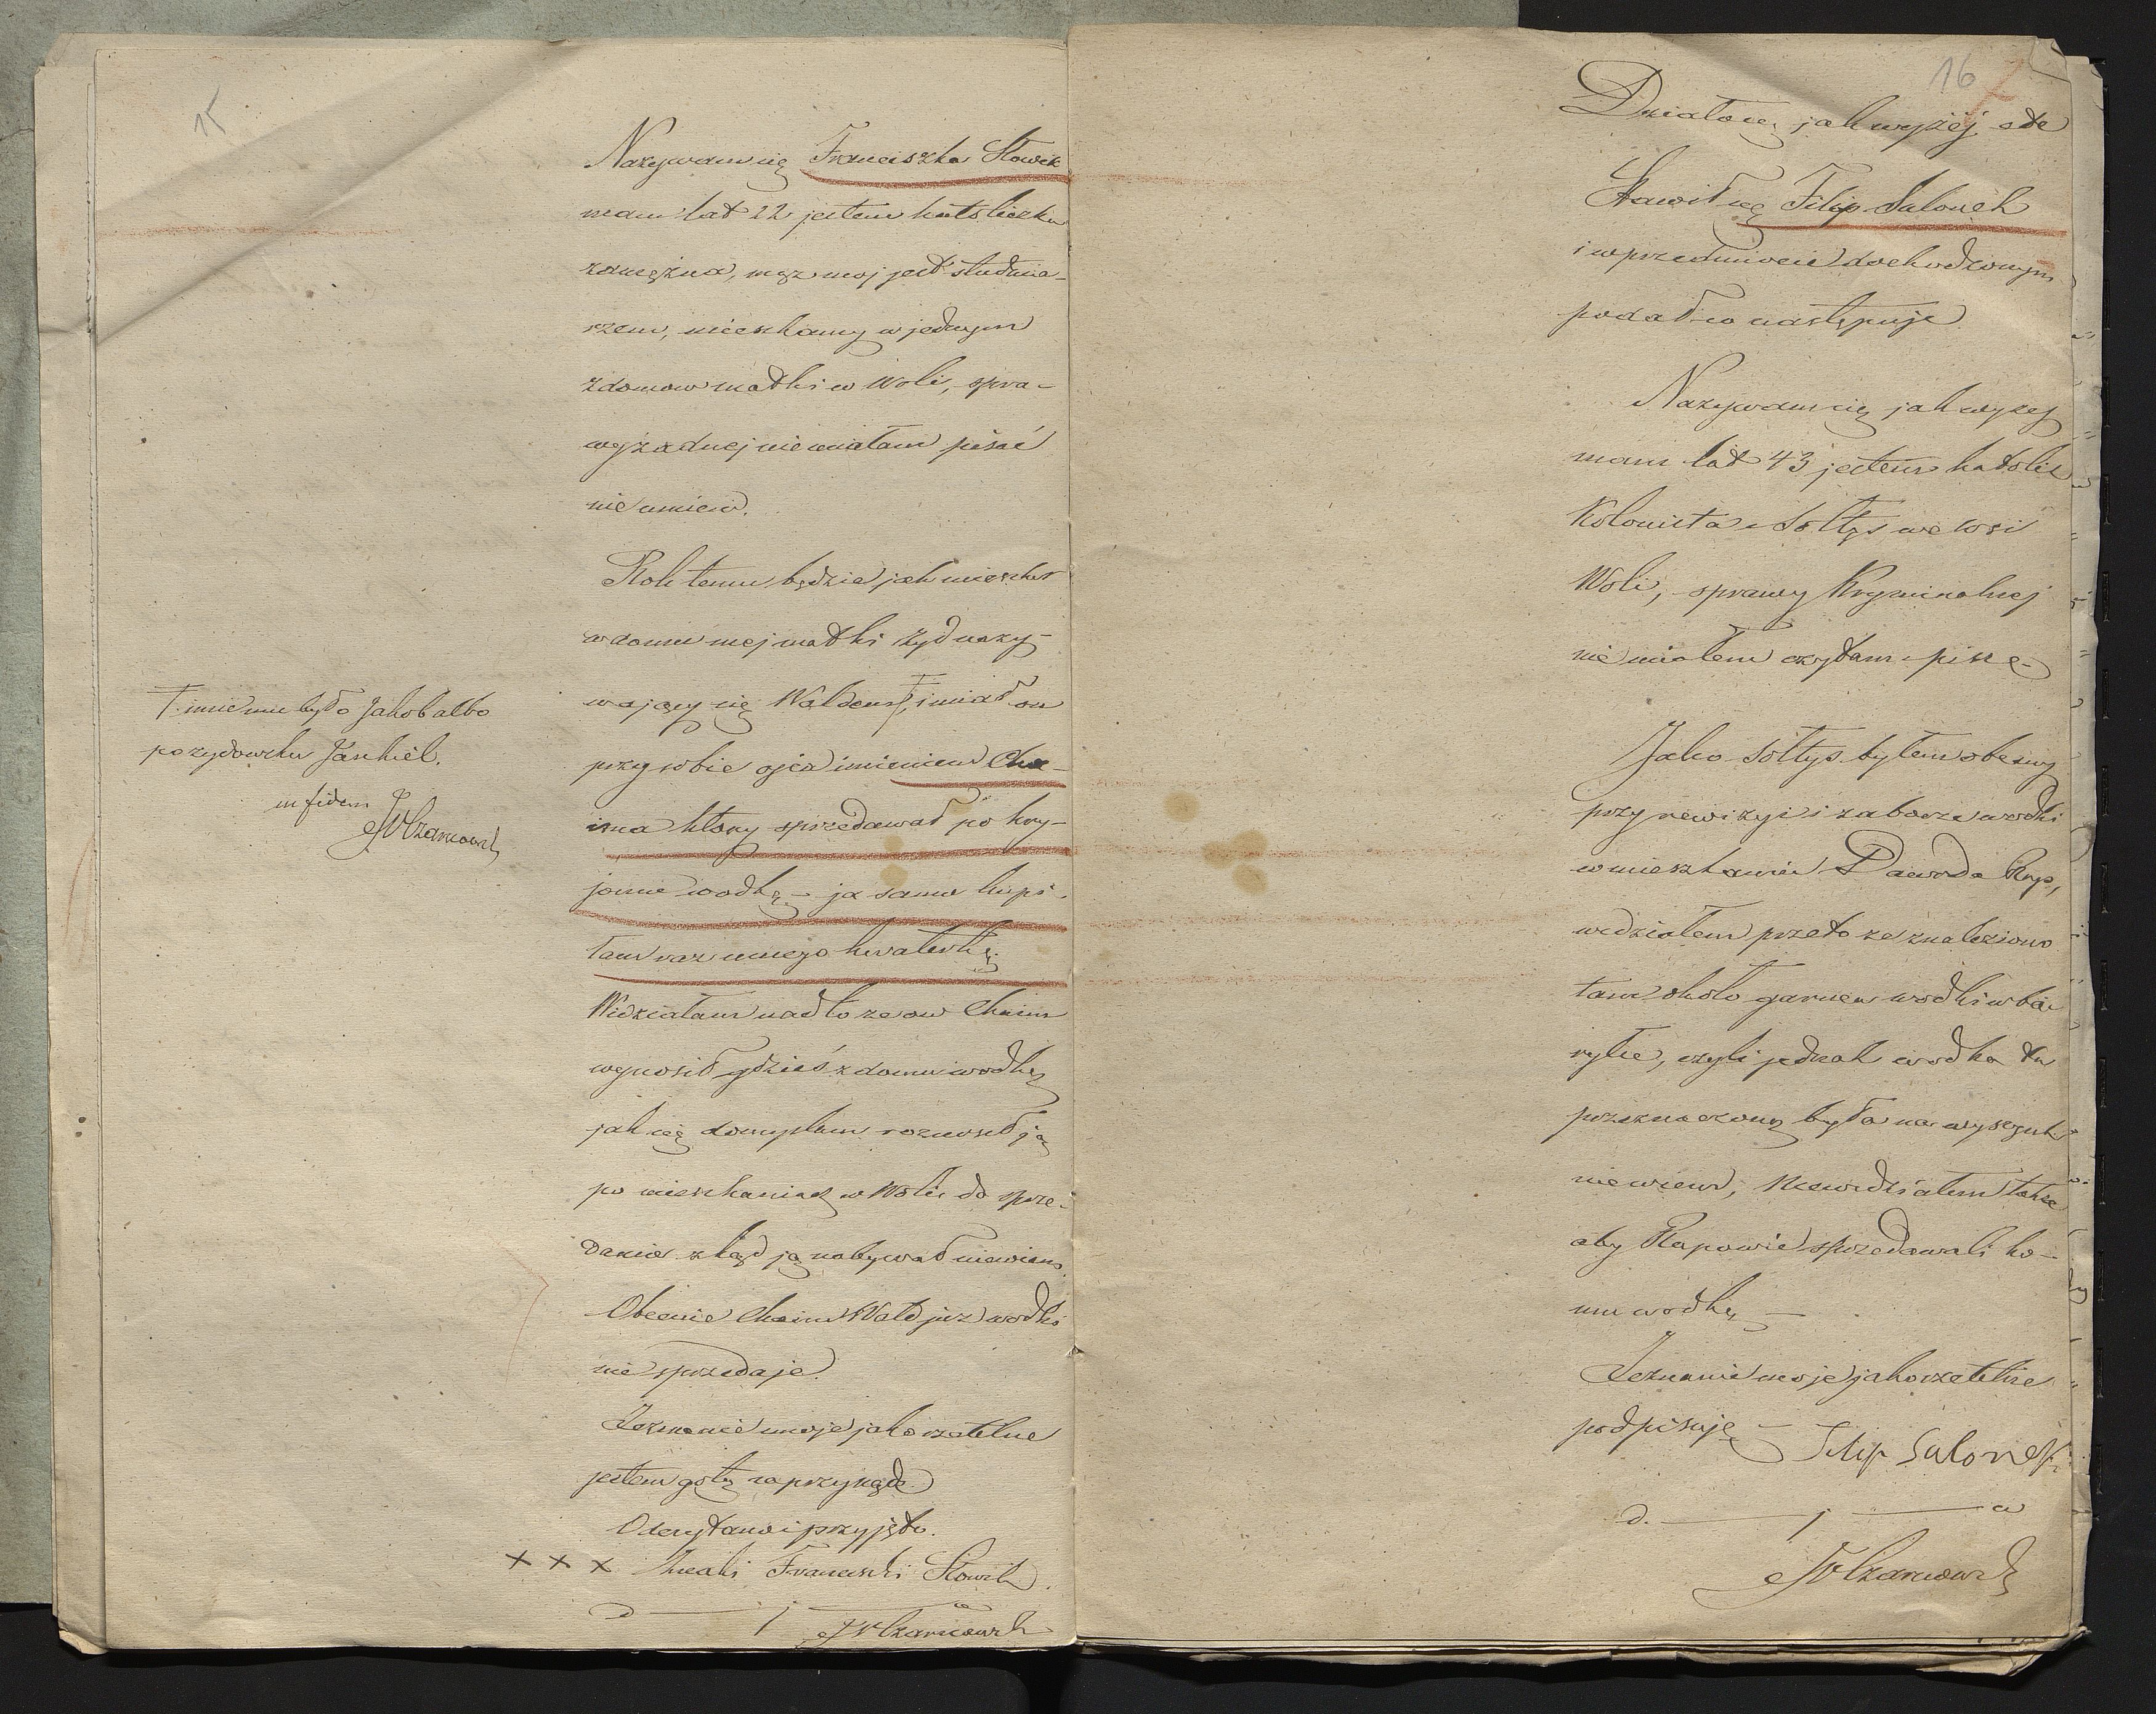 15
Nazywam się Franciszka Słowik
mam lat 22 jestem katoliczka
zamężna, mąż moj jest studnia-
rzem, mieszkamy w jednym
z domow matki w Woli, spra-
wy żadnej nie miałam pisać
nie umiem.
Rok temu będzie jak mieszkał
w domu mej matki żyd nazy-
wający się Walden F, i miał on
przy sobie ojca imieniem Cha-
ima ktory sprzedawał po kry-
jomu wodkę – ja sama kupi-
łam raz u niego kwaterkę.
Widziałam nadto ze ow Chaim
wynosił gdzieś z domu wodkę
jak się domyslam roznosił ją
po mieszkaniach w Woli do sprze-
dania zkąd ją nabywał niewiem.
Obecnie Chaim Wald juz wodki
nie sprzedaje.
Zeznanie moje jako rzetelne
jestem gotą zaprzysiądz.
Odczytano i przyjęto.
+ + + Znaki Franciszki Słowik.
d — j — w
JW Czarnowski
F. imie mu było Jakob albo
po zydowsku Jankiel.
in fidem
JW Czarnowski
16
Działo się jak wyżej, etc
Stawił się Filip Saloneh
i w przedmiocie dochodzonym
podał co następuje
Nazywam się jak wyzej
mam lat 43 jestem katolik
Kolonista i Sołtys we wsi
Woli, sprawy Kryminalnej
nie miałem czytam i piszę –
Jako Sołtys byłem obecny
przy rewizyi i zaborze wodki
w mieszkaniu Dawida Rap,
widziałem przeto ze znaleziono
tam około garnca wodki w ba-
ryłce, czyli jednak wodka ta
przeznaczoną była na wyszynk
niewiem, niewidziałem także
aby Rapowie sprzedawali ko-
mu wodkę –
Zeznanie moje jako rzetelne
podpisuję – Filip Salonek
d. — j — w
JW Czarnowski